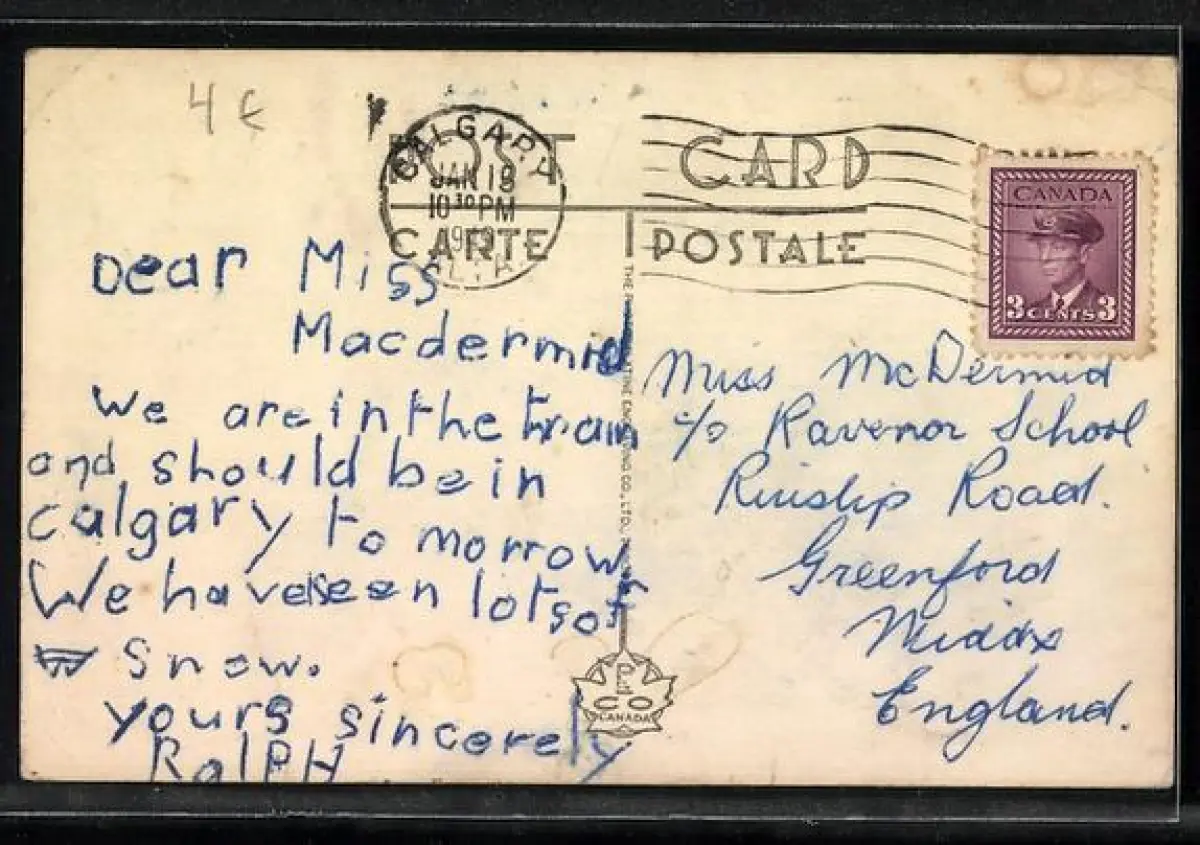 4 ¢
POST CARD
CARTE POSTALE
CALGARY
JAN 18
10 30 PM
CANADA
3 CENTS 3
Dear Miss
Macdermid
We are in the train
and should be in
calgary to morrow
We have seen lots of
Snow.
yours sincerely
RalPH
Miss McDermid
c/o Ravenor School
Ruislip Road.
Greenford
Middx
England.
CO
CANADA